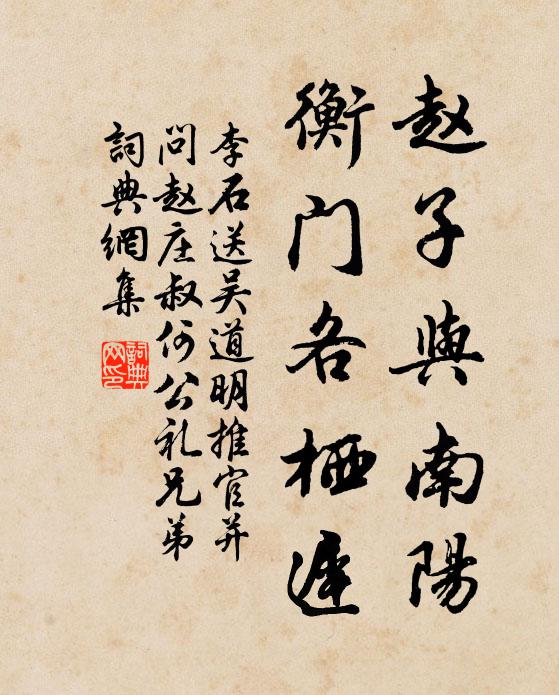 赵子與南陽
衡门各栖遲
李石送吴道明推官并
问赵庄叔何公礼兄弟
詞典網集
詞典网印